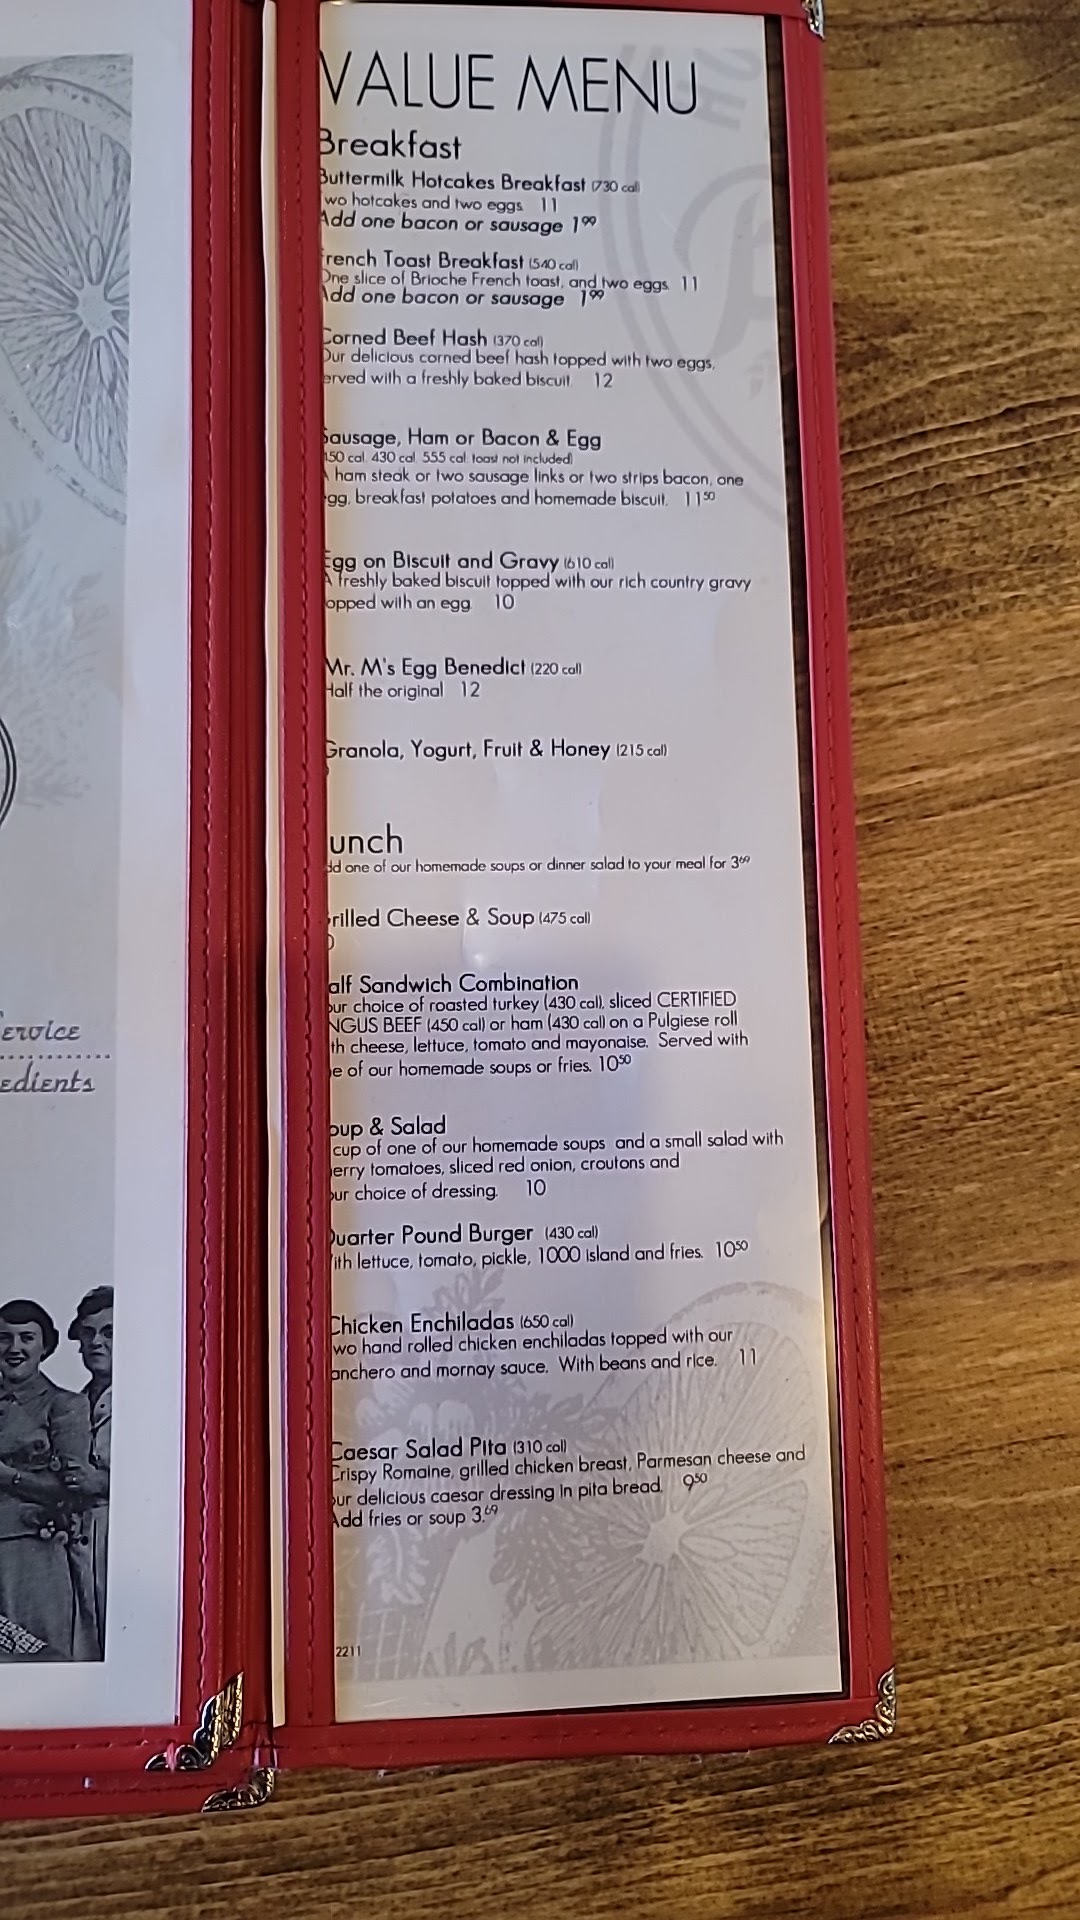 VALUE MENU
Breakfast
Buttermilk Hotcakes Breakfast (730 cal)
wo hotcakes and two eggs 11
Add one bacon or sausage 1⁹⁹
rench Toast Breakfast (540 cal)
One slice of Brioche French toast, and two eggs 11
Add one bacon or sausage 1⁹⁹
Corned Beef Hash (370 cal)
Our delicious corned beef hash topped with two eggs,
erved with a freshly baked biscuit. 12
Sausage, Ham or Bacon & Egg
50 cal. 430 cal. 555 cal. toast not included)
A ham steak or two sausage links or two strips bacon, one
gg, breakfast potatoes and homemade biscuit. 11⁵⁰
Egg on Biscuit and Gravy (610 cal)
A freshly baked biscuit topped with our rich country gravy
opped with an egg 10
Mr. M's Egg Benedict (220 cal)
Half the original 12
Granola, Yogurt, Fruit & Honey (215 cal)
unch
dd one of our homemade soups or dinner salad to your meal for 3⁶⁹
rilled Cheese & Soup (475 cal)
alf Sandwich Combination
our choice of roasted turkey (430 cal), sliced CERTIFIED
NGUS BEEF (450 cal) or ham (430 cal) on a Pulgiese roll
th cheese, lettuce, tomato and mayonaise. Served with
e of our homemade soups or fries. 10⁵⁰
oup & Salad
cup of one of our homemade soups and a small salad with
erry tomatoes, sliced red onion, croutons and
our choice of dressing. 10
Quarter Pound Burger (430 cal)
ith lettuce, tomato, pickle, 1000 island and fries. 10⁵⁰
Chicken Enchiladas (650 cal)
wo hand rolled chicken enchiladas topped with our
anchero and mornay sauce. With beans and rice. 11
Caesar Salad Pita (310 cal)
Crispy Romaine, grilled chicken breast, Parmesan cheese and
our delicious caesar dressing in pita bread. 9⁵⁰
Add fries or soup 3.⁶⁹
2211
ervice
edients